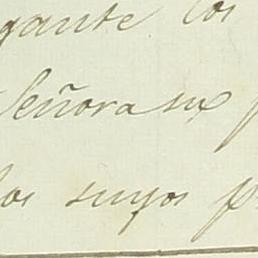 gante los
Señora su p
los suyos p